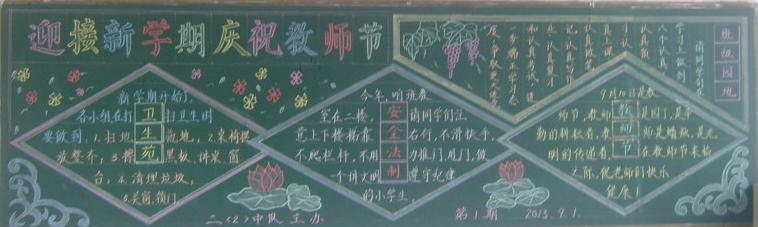 迎接新学期庆祝教师节
班级园地
卫生苑
新学期开始了,
各小组在打扫卫生时
要做到:1.扫地、拖地,2.桌椅摆
放整齐,3.擦黑板、讲桌、窗
台,4.清理垃圾,
5.关窗、锁门
安全法制
今年,咱班教
室在二楼,请同学们注
意上下楼梯靠右行,不滑扶手,
不爬栏杆,不用力推门、甩门,做
一个讲文明遵守纪律
的小学生。
教师节
9月10日是教
师节,教师是园丁,是辛
勤的耕耘者,教师是蜡烛,是光
明的传递者,在教师节来临
之际,祝老师们快乐
健康!
二〈2〉中队 主办
第1期 2013.9.1.